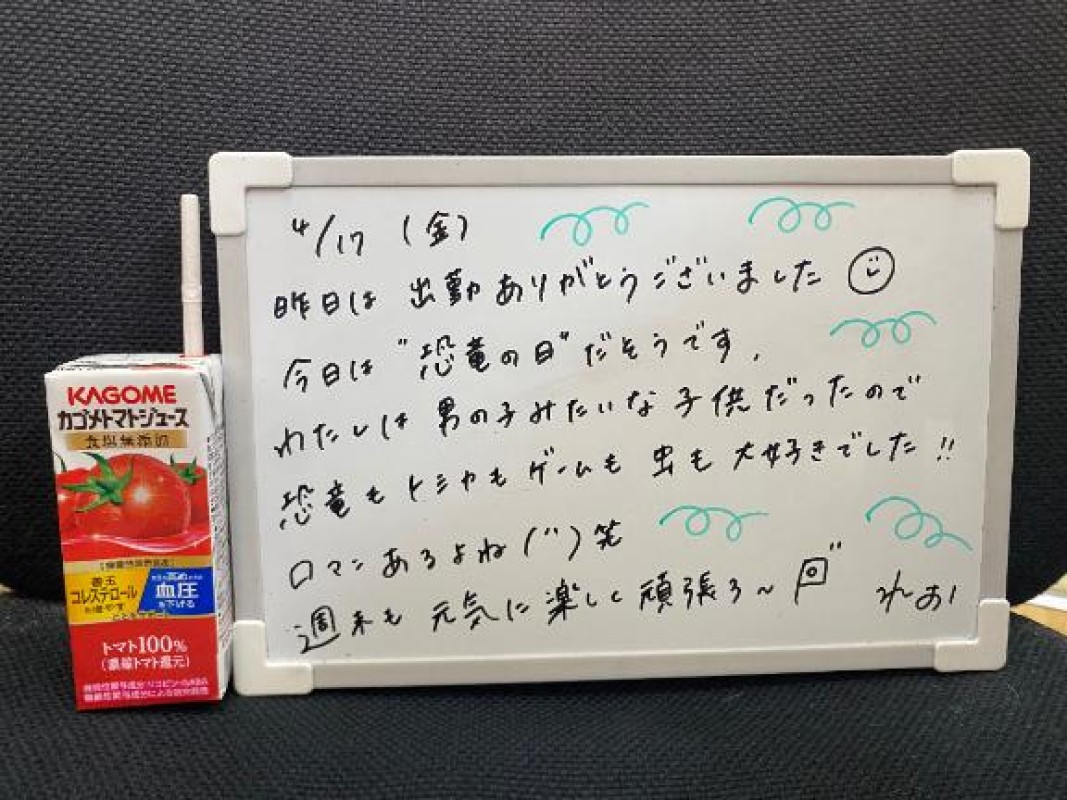 4/17 (金)
昨日は 出勤ありがとうございました
今日は "恐竜の日" だそうです.
わたしは 男の子みたいな子供だったので
恐竜も トミカも ゲームも 虫も 大好きでした!!
ロマンあるよね(¨)笑
週末も 元気に 楽しく 頑張ろ~
れお
KAGOME
カゴメトマトジュース
食塩無添加
善玉
コレステロール
を増やす
血圧
を下げる
トマト100%
(濃縮トマト還元)